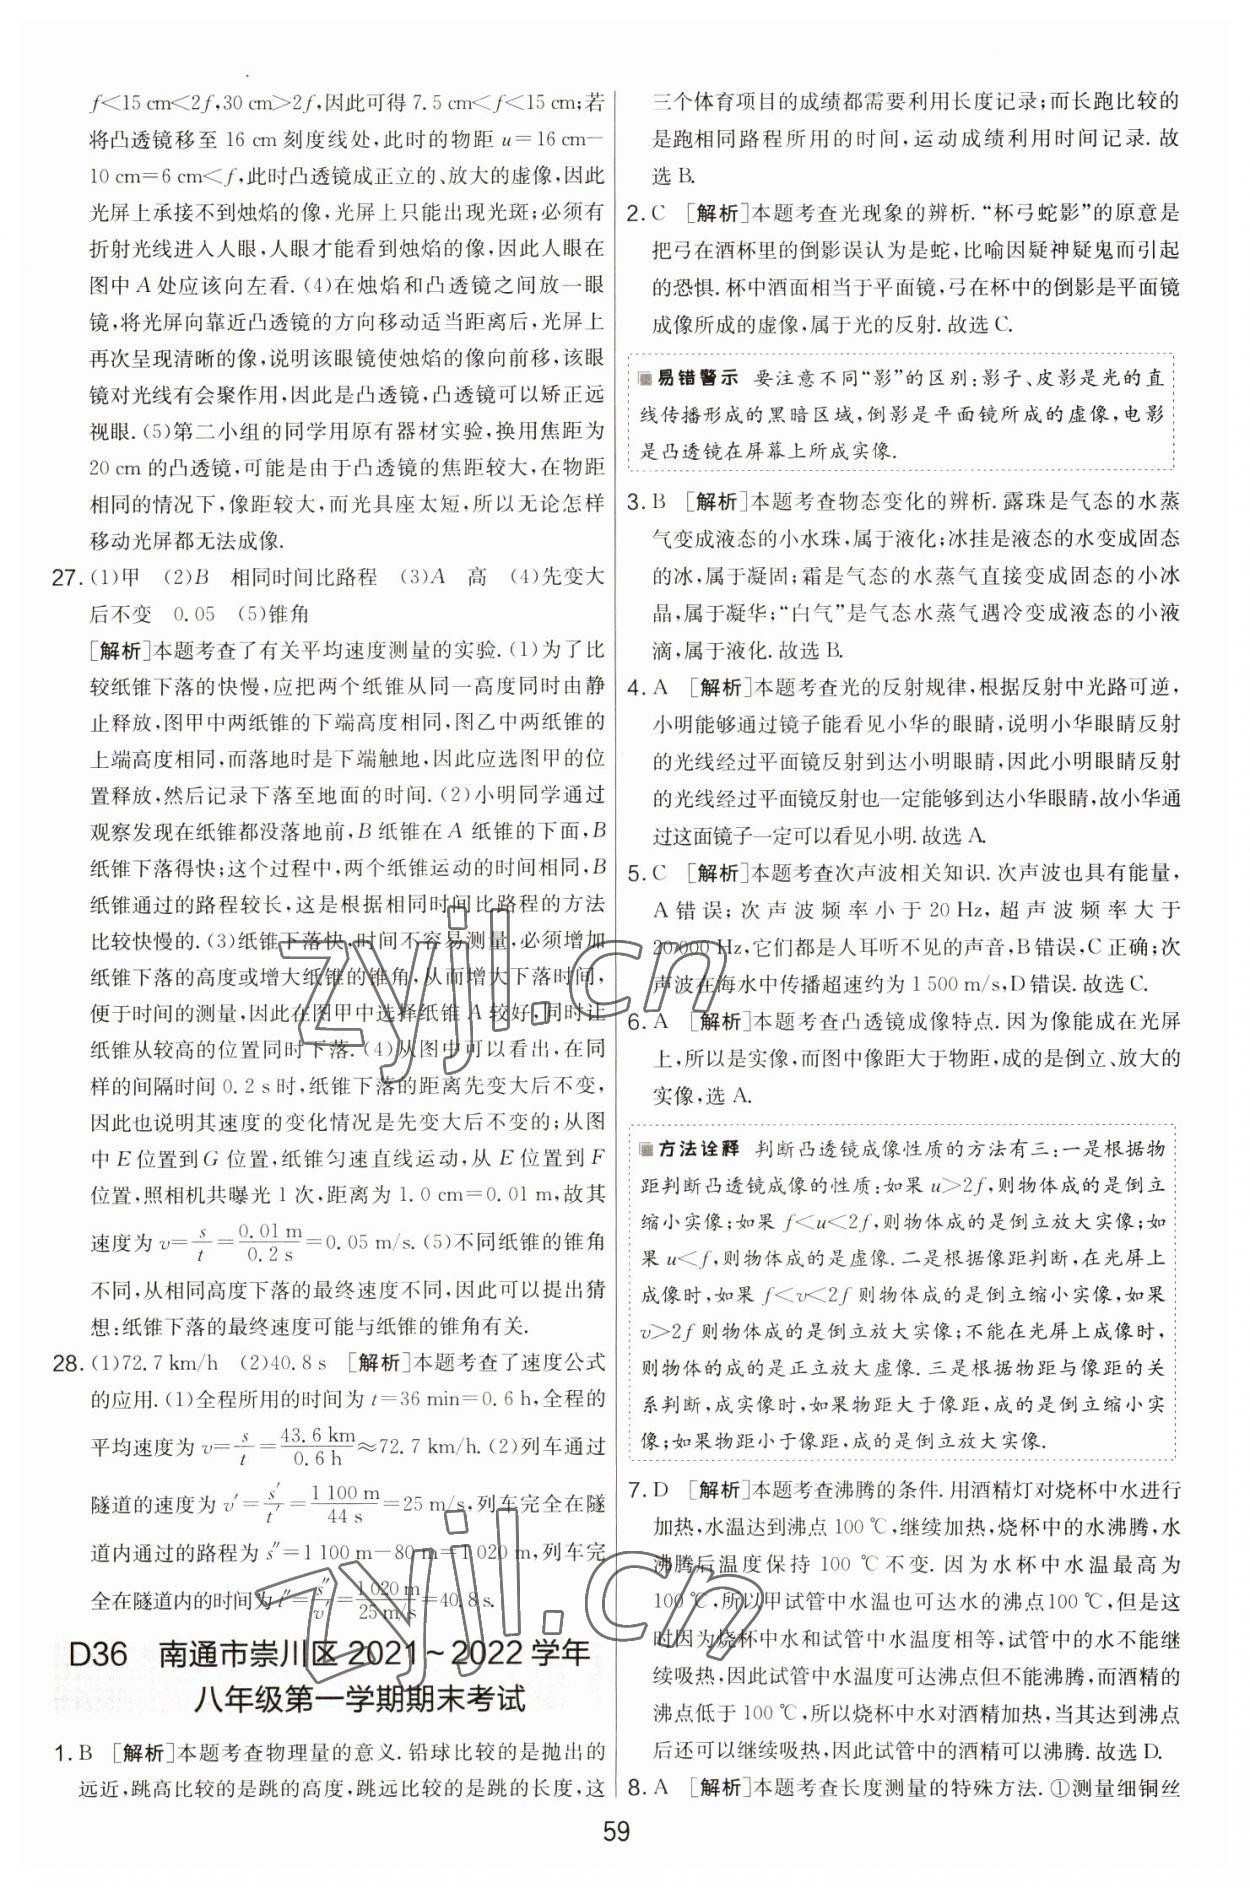 f<15 cm<2f,30 cm>2f,因此可得 7.5 cm<f<15 cm;若
将凸透镜移至 16 cm 刻度线处,此时的物距 u=16 cm-
10 cm=6 cm<f,此时凸透镜成正立的、放大的虚像,因此
光屏上承接不到烛焰的像,光屏上只能出现光斑;必须有
折射光线进入人眼,人眼才能看到烛焰的像,因此人眼在
图中 A 处应该向左看.(4)在烛焰和凸透镜之间放一眼
镜,将光屏向靠近凸透镜的方向移动适当距离后,光屏上
再次呈现清晰的像,说明该眼镜使烛焰的像向前移,该眼
镜对光线有会聚作用,因此是凸透镜,凸透镜可以矫正远
视眼.(5)第二小组的同学用原有器材实验,换用焦距为
20 cm 的凸透镜,可能是由于凸透镜的焦距较大,在物距
相同的情况下,像距较大,而光具座太短,所以无论怎样
移动光屏都无法成像.
27. (1)甲 (2)B 相同时间比路程 (3)A 高 (4)先变大
后不变 0.05 (5)锥角
[解析]本题考查了有关平均速度测量的实验.(1)为了比
较纸锥下落的快慢,应把两个纸锥从同一高度同时由静
止释放,图甲中两纸锥的下端高度相同,图乙中两纸锥的
上端高度相同,而落地时是下端触地,因此应选图甲的位
置释放,然后记录下落至地面的时间.(2)小明同学通过
观察发现在纸锥都没落地前,B 纸锥在 A 纸锥的下面,B
纸锥下落得快;这个过程中,两个纸锥运动的时间相同,B
纸锥通过的路程较长,这是根据相同时间比路程的方法
比较快慢的.(3)纸锥下落快,时间不容易测量,必须增加
纸锥下落的高度或增大纸锥的锥角,从而增大下落时间,
便于时间的测量,因此在图甲中选择纸锥 A 较好,同时让
纸锥从较高的位置同时下落.(4)从图中可以看出,在同
样的间隔时间 0.2 s 时,纸锥下落的距离先变大后不变,
因此也说明其速度的变化情况是先变大后不变的;从图
中 E 位置到 G 位置,纸锥匀速直线运动,从 E 位置到 F
位置,照相机共曝光 1 次,距离为 1.0 cm=0.01 m,故其
速度为 v=s/t=0.01 m/0.2 s=0.05 m/s.(5)不同纸锥的锥角
不同,从相同高度下落的最终速度不同,因此可以提出猜
想:纸锥下落的最终速度可能与纸锥的锥角有关.
28. (1)72.7 km/h (2)40.8 s [解析]本题考查了速度公式
的应用.(1)全程所用的时间为 t=36 min=0.6 h,全程的
平均速度为 v=s/t=43.6 km/0.6 h≈72.7 km/h.(2)列车通过
隧道的速度为 v′=s′/t′=1 100 m/44 s=25 m/s,列车完全在隧
道内通过的路程为 s″=1 100 m-80 m=1 020 m,列车完
全在隧道内的时间为 t″=s″/v′=1 020 m/25 m/s=40.8 s.
D36 南通市崇川区 2021～2022 学年
八年级第一学期期末考试
1. B [解析]本题考查物理量的意义.铅球比较的是抛出的
远近,跳高比较的是跳的高度,跳远比较的是跳的长度,这
三个体育项目的成绩都需要利用长度记录;而长跑比较的
是跑相同路程所用的时间,运动成绩利用时间记录.故
选 B.
2. C [解析]本题考查光现象的辨析.“杯弓蛇影”的原意是
把弓在酒杯里的倒影误认为是蛇,比喻因疑神疑鬼而引起
的恐惧.杯中酒面相当于平面镜,弓在杯中的倒影是平面镜
成像所成的虚像,属于光的反射.故选 C.
易错警示 要注意不同“影”的区别:影子、皮影是光的直
线传播形成的黑暗区域,倒影是平面镜所成的虚像,电影
是凸透镜在屏幕上所成实像.
3. B [解析]本题考查物态变化的辨析.露珠是气态的水蒸
气变成液态的小水珠,属于液化;冰挂是液态的水变成固态
的冰,属于凝固;霜是气态的水蒸气直接变成固态的小冰
晶,属于凝华;“白气”是气态水蒸气遇冷变成液态的小液
滴,属于液化.故选 B.
4. A [解析]本题考查光的反射规律,根据反射中光路可逆,
小明能够通过镜子能看见小华的眼睛,说明小华眼睛反射
的光线经过平面镜反射到达小明眼睛,因此小明眼睛反射
的光线经过平面镜反射也一定能够到达小华眼睛,故小华通
过这面镜子一定可以看见小明.故选 A.
5. C [解析]本题考查次声波相关知识.次声波也具有能量,
A 错误;次声波频率小于 20 Hz,超声波频率大于
20 000 Hz,它们都是人耳听不见的声音,B 错误,C 正确;次
声波在海水中传播超速约为 1 500 m/s,D 错误.故选 C.
6. A [解析]本题考查凸透镜成像特点.因为像能成在光屏
上,所以是实像,而图中像距大于物距,成的是倒立、放大的
实像,选 A.
方法诠释 判断凸透镜成像性质的方法有三:一是根据物
距判断凸透镜成像的性质:如果 u>2f,则物体成的是倒立
缩小实像;如果 f<u<2f,则物体成的是倒立放大实像;如
果 u<f,则物体成的是虚像.二是根据像距判断,在光屏上
成像时,如果 f<v<2f 则物体成的是倒立缩小实像,如果
v>2f 则物体成的是倒立放大实像;不能在光屏上成像时,
则物体的成的是正立放大虚像.三是根据物距与像距的关
系判断,成实像时,如果物距大于像距,成的是倒立缩小实
像;如果物距小于像距,成的是倒立放大实像.
7. D [解析]本题考查沸腾的条件.用酒精灯对烧杯中水进行
加热,水温达到沸点 100 ℃,继续加热,烧杯中的水沸腾,水
沸腾后温度保持 100 ℃ 不变.因为水杯中水温最高为
100 ℃,所以甲试管中水温也可达水的沸点 100 ℃,但是,这
时因为烧杯中水和试管中水温度相等,试管中的水不能继
续吸热,因此试管中水温度可达沸点但不能沸腾,而酒精的
沸点低于 100 ℃,所以烧杯中水对酒精加热,当其达到沸点
后还可以继续吸热,因此试管中的酒精可以沸腾.故选 D.
8. A [解析]本题考查长度测量的特殊方法.①测量细铜丝
59
zyjl.cn
zyjl.cn